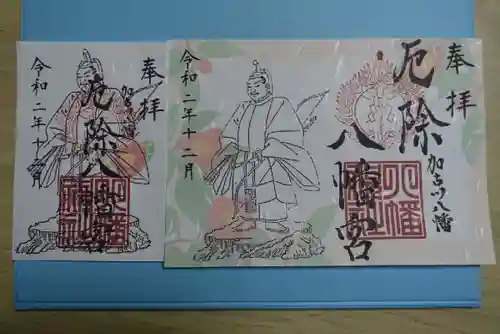 奉拝
厄除八幡宮
加古川八幡
令和二年十二月
奉拝
厄除
八幡宮
加古川八幡
令和二年十二月